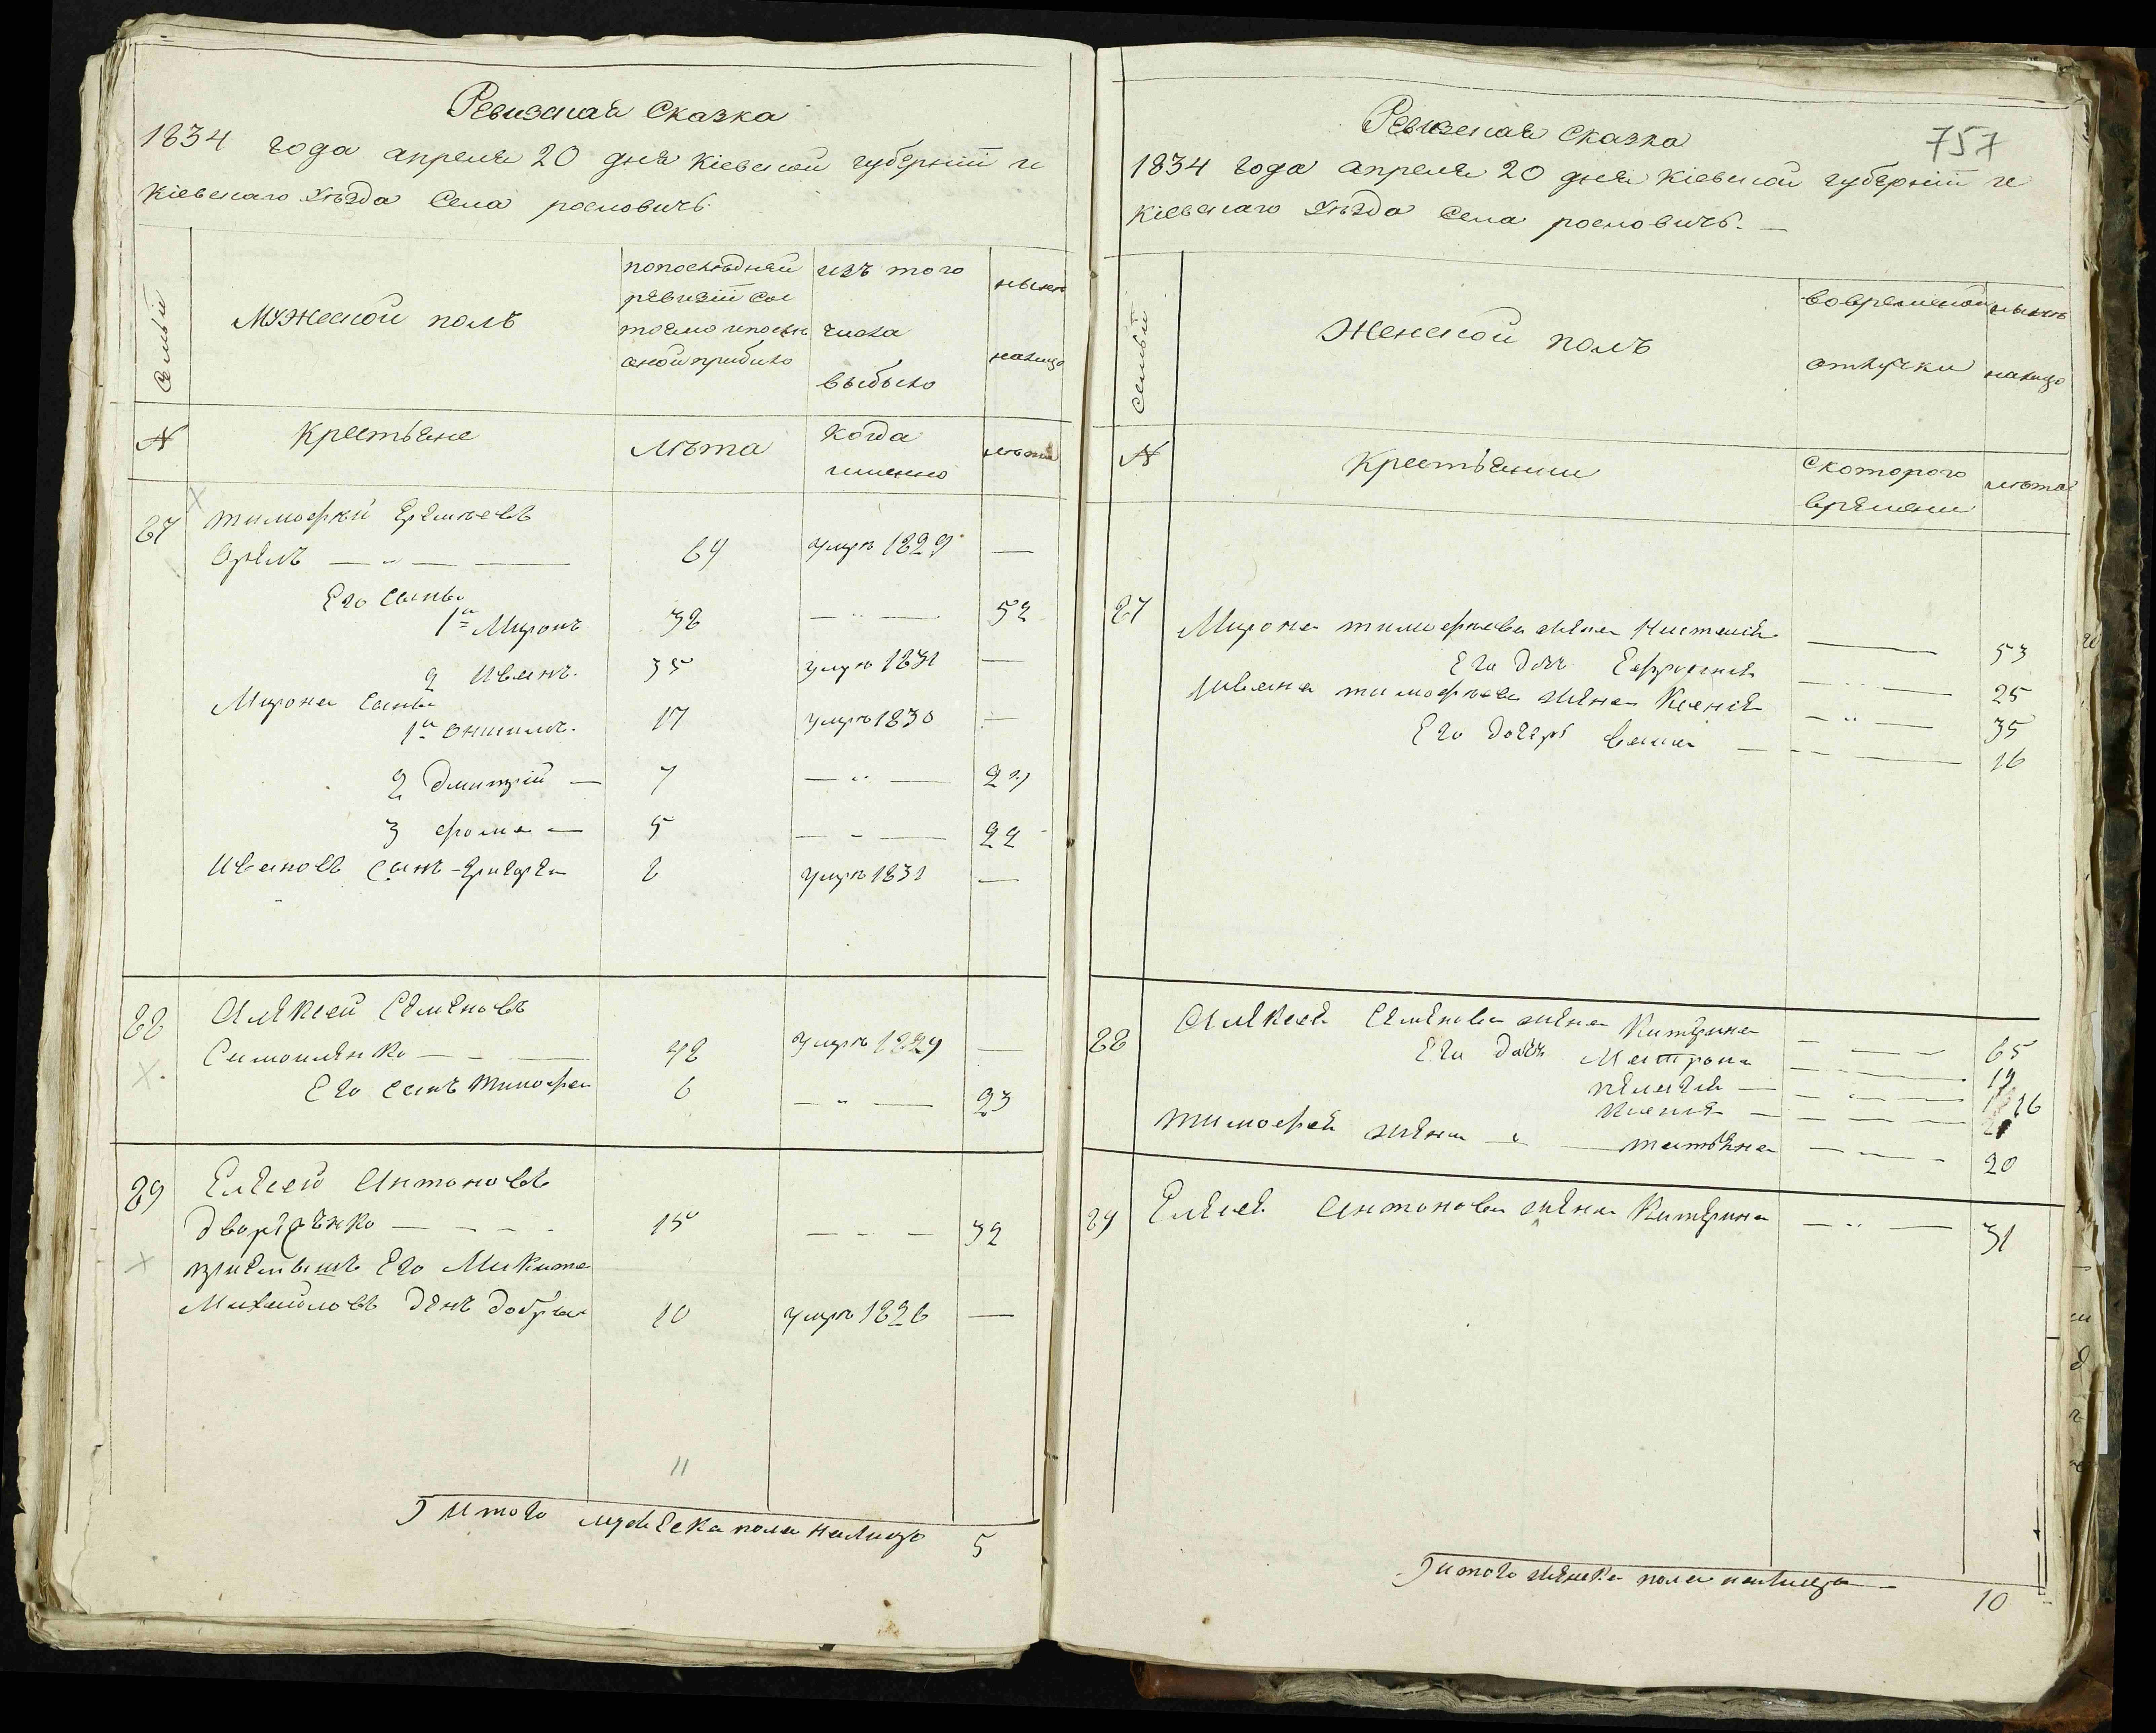 Ревизская Сказка
1834 года апреля 20 дня Кіевской губерніи и
Кіевскаго уѣзда Села рословичъ
Семьи
Мужеской полъ
попослѣдней
ревизіи сос
тояло ипослѣ
оной прибыло
изъ того
числа
выбыло
нынѣ
налицо
№
Крестьяне
Лѣта
Когда
именно
лѣта
27
тимофѣй
орелъ
64
умре 1829
Его сыны
1й Миронъ
38
52
2 Иванъ
35
умре 1831
Мирона сыны
1й онисимъ
17
умре 1830
2 дмитрій
7
3 фома
5
22
Ивановъ сынъ
умре 1831
28
Алексей Семеновъ
Симоненко
48
умре 1829
Его сынъ тимофей
6
23
29
Елисей Антоновъ
15
32
пріемышъ Его Микита
Михайловъ
10
умре 1826
11
Итого мужеска пола налицо
5
757
Ревизская Сказка
1834 года апреля 20 дня Кіевской губерніи и
Кіевскаго уѣзда Села рословичъ.
Семьи
Женской полъ
вовременной
отлучки
нынѣ
налицо
№
Крестьянки
Скоторого
времени
лѣта
27
Мирона тимофѣева жена
53
Его дочь
25
Ивана тимофѣева жена Ксенія
35
Его дочерь
16
28
Алексея Семенова жена Катерина
65
Его дочь Матрона
19
16
Тимофея жена татьяна
20
29
Елисея Антонова жена Катерина
31
Итого женска пола налицо
10